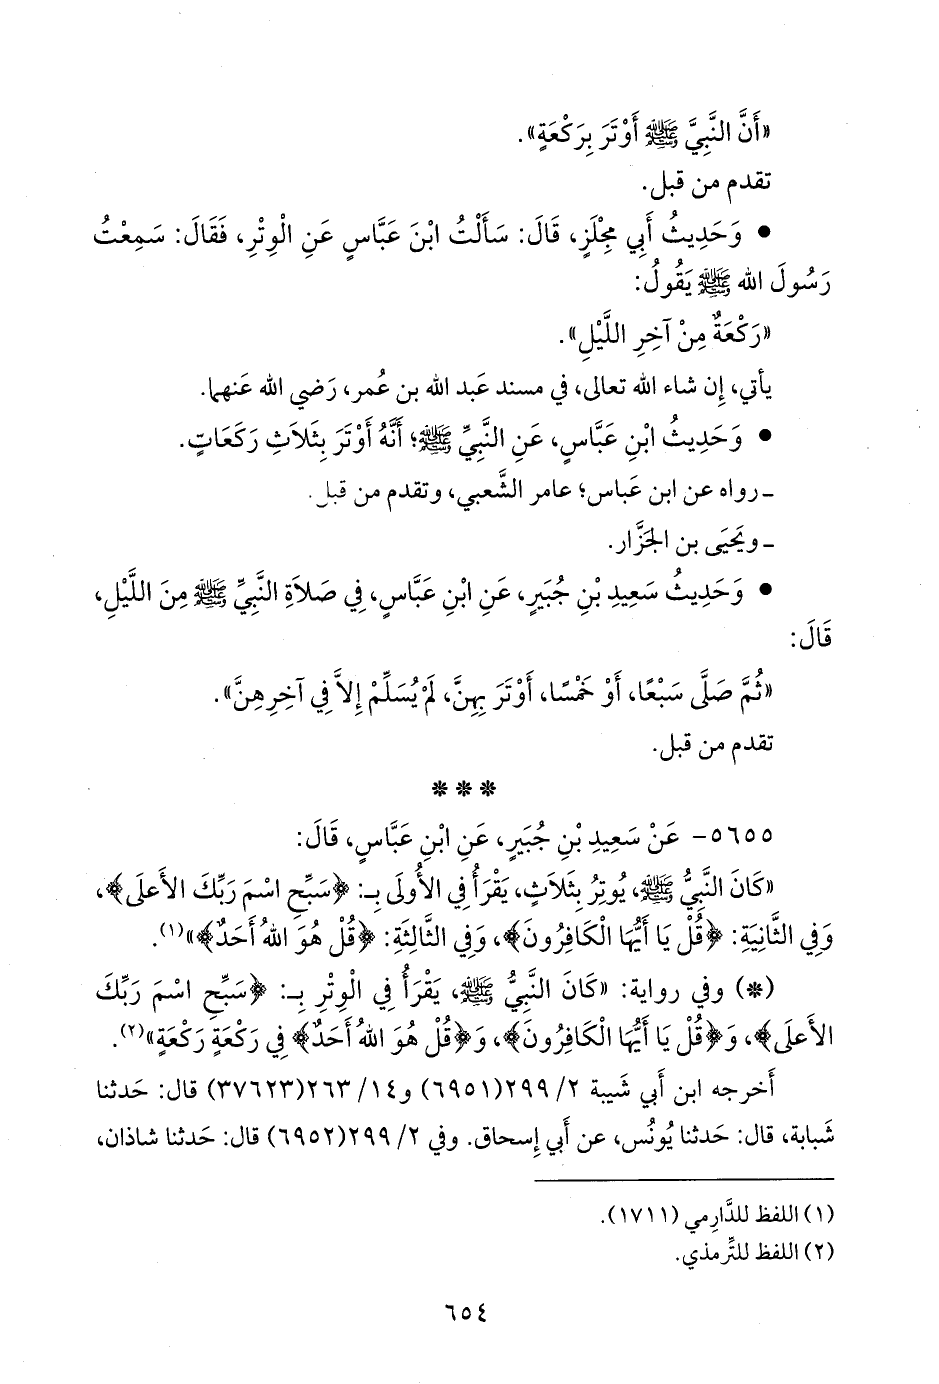 «أَنَّ النَّبِيَّ ﷺ أَوْتَرَ بِرَكْعَةٍ».
تقدم من قبل.
• وَحَدِيثُ أَبِي مِجْلَزٍ، قَالَ: سَأَلْتُ ابْنَ عَبَّاسٍ عَنِ الْوِتْرِ، فَقَالَ: سَمِعْتُ
رَسُولَ الله ﷺ يَقُولُ:
«رَكْعَةٌ مِنْ آخِرِ اللَّيْلِ».
يأتي، إِن شاء الله تعالى، في مسند عَبد الله بن عُمر، رَضي الله عَنهما.
• وَحَدِيثُ ابْنِ عَبَّاسٍ، عَنِ النَّبِيِّ ﷺ؛ أَنَّهُ أَوْتَرَ بِثَلاَثِ رَكَعَاتٍ.
ـ رواه عن ابن عَباس؛ عامر الشَّعبي، وتقدم من قبل.
ـ ويَحيَى بن الجَزَّار.
• وَحَدِيثُ سَعِيدِ بْنِ جُبَيرٍ، عَنِ ابْنِ عَبَّاسٍ، فِي صَلاَةِ النَّبِيِّ ﷺ مِنَ اللَّيْلِ،
قَالَ:
«ثُمَّ صَلَّى سَبْعًا، أَوْ خَمْسًا، أَوْتَرَ بِهِنَّ، لَمْ يُسَلِّمْ إِلاَّ فِي آخِرِهِنَّ».
تقدم من قبل.
* * *
٥٦٥٥- عَنْ سَعِيدِ بْنِ جُبَيرٍ، عَنِ ابْنِ عَبَّاسٍ، قَالَ:
«كَانَ النَّبِيُّ ﷺ، يُوتِرُ بِثَلاَثٍ، يَقْرَأُ فِي الأُولَى بِـ: ﴿سَبِّحِ اسْمَ رَبِّكَ الأَعلَى﴾،
وَفِي الثَّانِيَةِ: ﴿قُلْ يَا أَيُّهَا الْكَافِرُونَ﴾، وَفِي الثَّالِثَةِ: ﴿قُلْ هُوَ اللهُ أَحَدٌ﴾»(١).
(*) وفي رواية: «كَانَ النَّبِيُّ ﷺ، يَقْرَأُ فِي الْوِتْرِ بِـ: ﴿سَبِّحِ اسْمَ رَبِّكَ
الأَعلَى﴾، وَ﴿قُلْ يَا أَيُّهَا الْكَافِرُونَ﴾، وَ﴿قُلْ هُوَ اللهُ أَحَدٌ﴾ فِي رَكْعَةٍ رَكْعَةٍ»(٢).
أَخرجه ابن أَبي شَيبة ٢/ ٢٩٩(٦٩٥١) و١٤/ ٢٦٣(٣٧٦٢٣) قال: حَدثنا
شَبابة، قال: حَدثنا يُونُس، عن أَبي إِسحاق. وفي ٢/ ٢٩٩(٦٩٥٢) قال: حَدثنا شاذان،
(١) اللفظ للدَّارِمي (١٧١١).
(٢) اللفظ للتِّرمذي.
٦٥٤